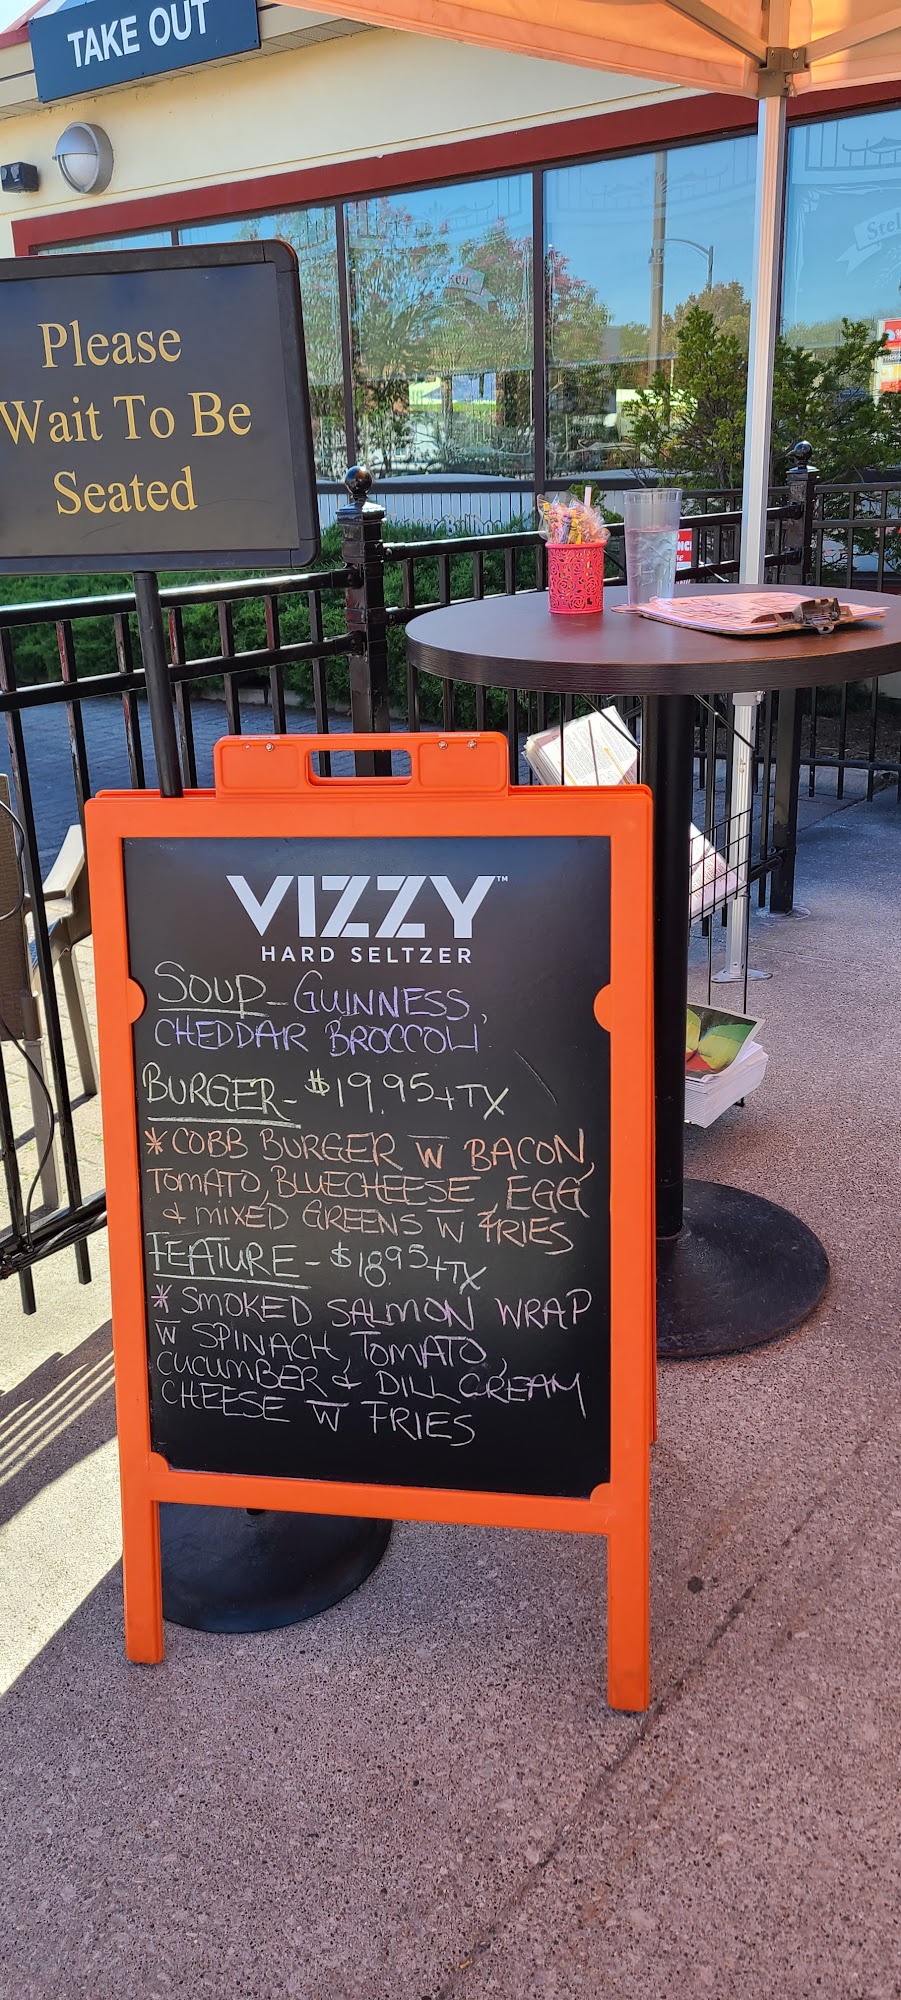 TAKE OUT
Please
Wait To Be
Seated
VIZZY™
HARD SELTZER
SOUP - GUINNESS,
CHEDDAR BROCCOLI
BURGER - $19.95+TX
* COBB BURGER W BACON,
TOMATO, BLUECHEESE, EGG
& MIXED GREENS W FRIES
FEATURE - $18.95+TX
* SMOKED SALMON WRAP
W SPINACH, TOMATO,
CUCUMBER & DILL CREAM
CHEESE W FRIES